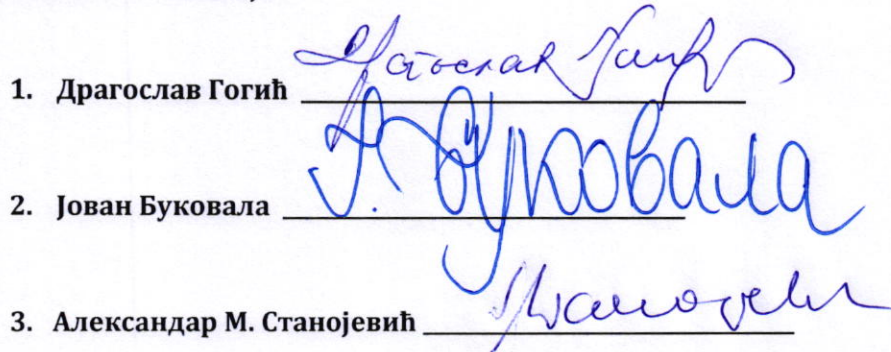 1. Драгослав Гогић
2. Јован Буковала Ј. Буковала
3. Александар М. Станојевић